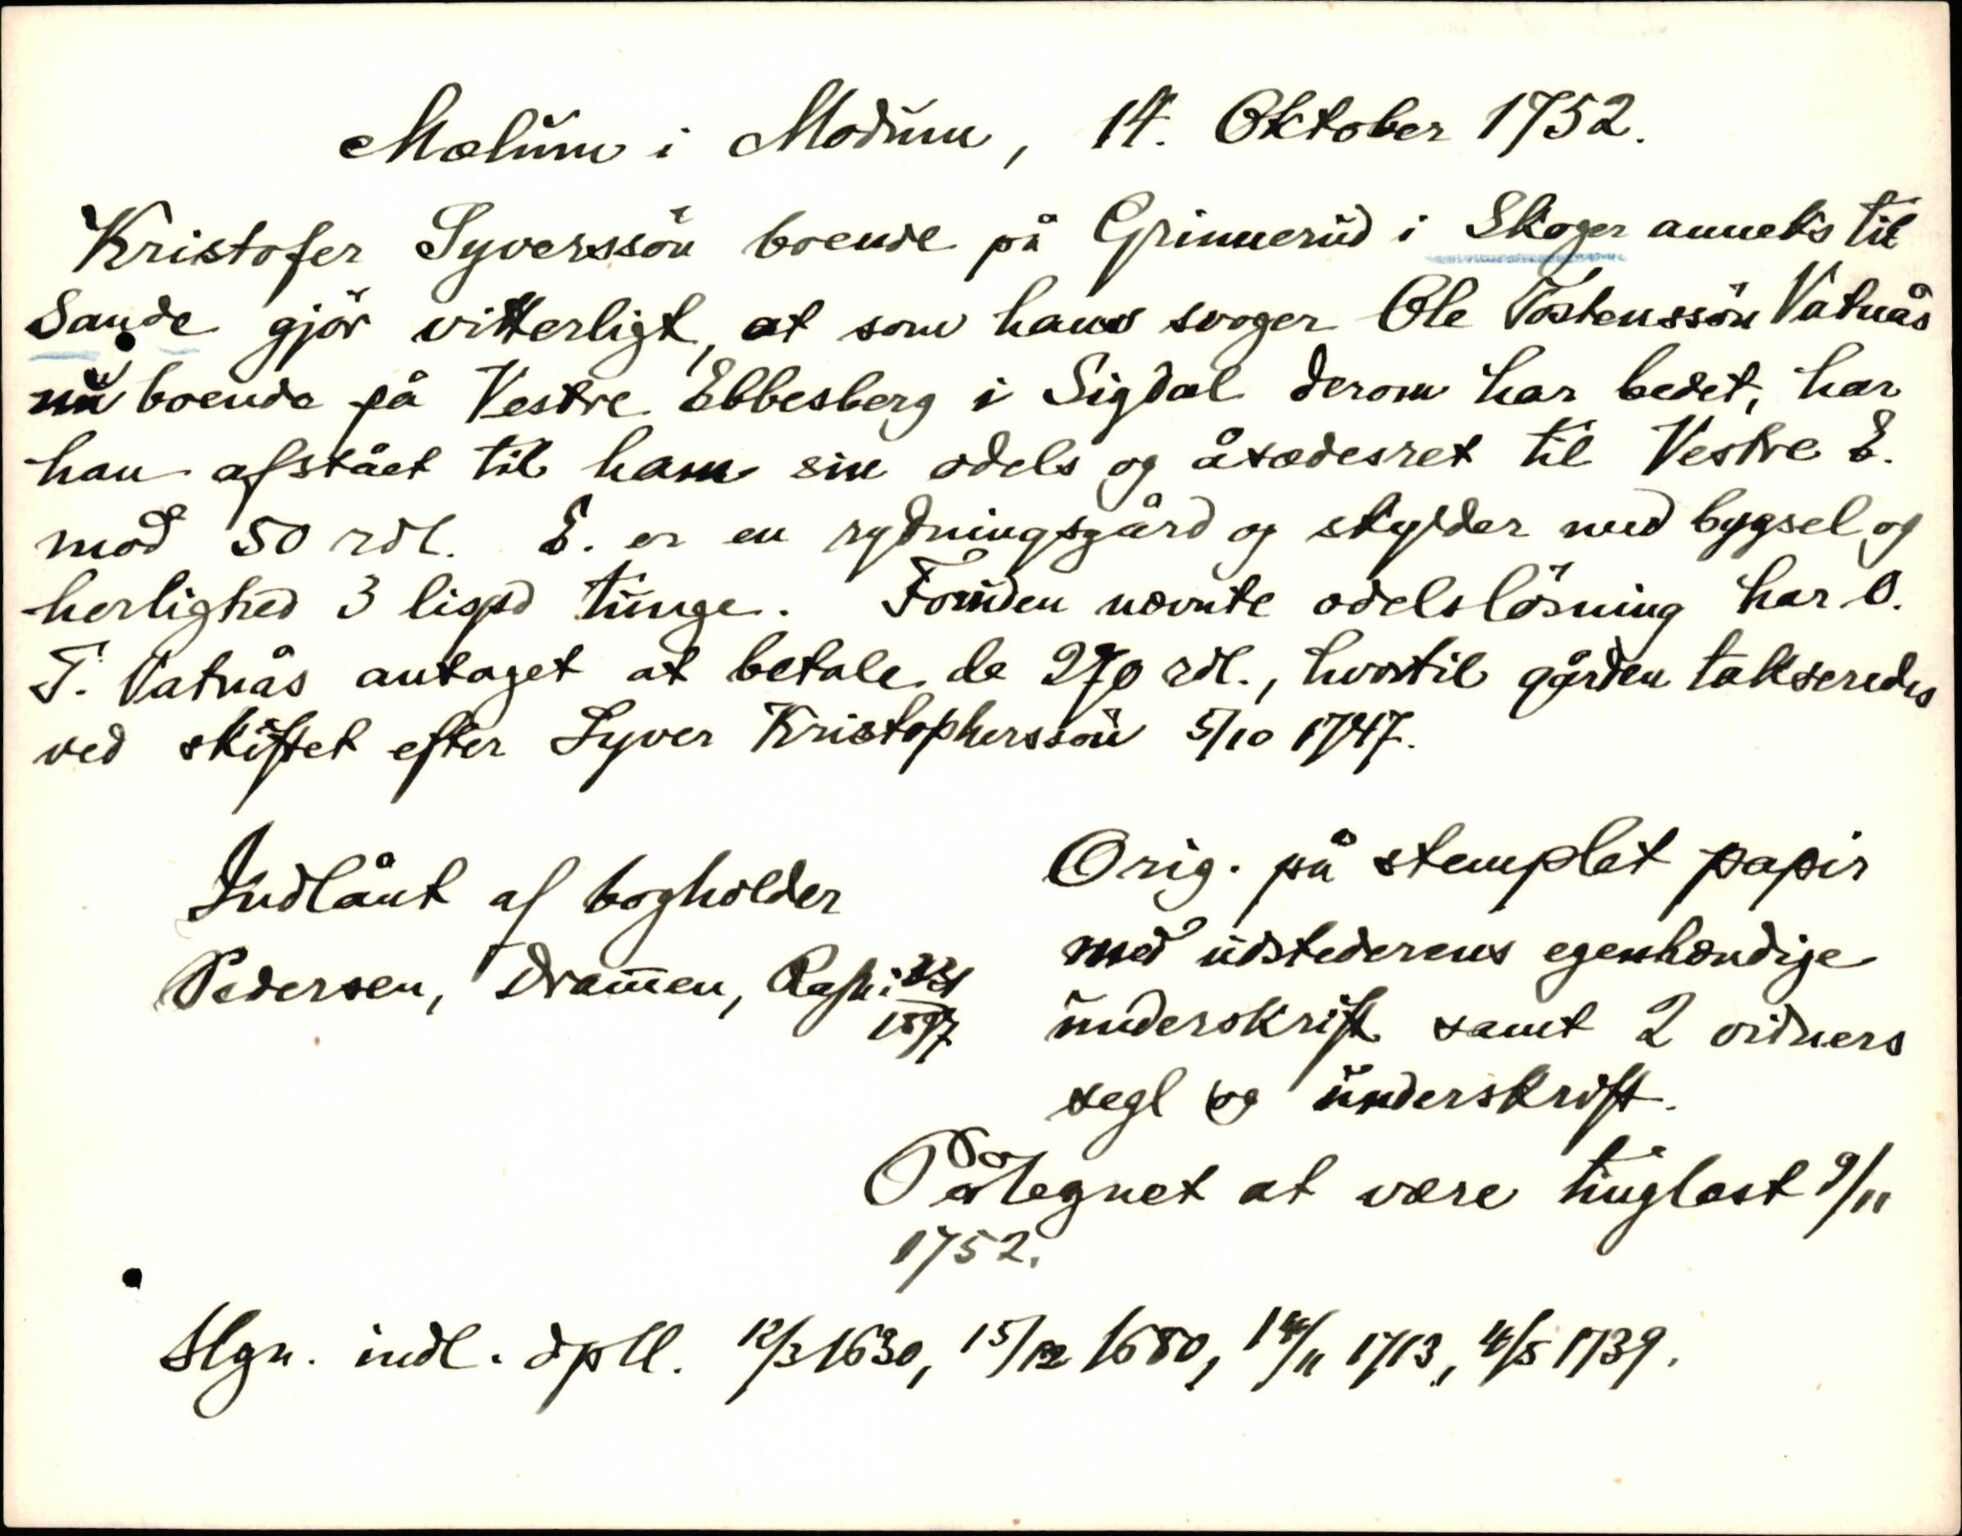 Mælum i Modum, 14. Oktober 1752.
Kristofer Syverssön boende på Grinnerud i Skoger anneks til
Sande gjör vitterligt, at som hans svoger Ole Tostenssön Vatnås
nu boende på Vestre Ebbesberg i Sigdal derom har bedet, har
han afstået til ham sin odels og åsædesret til Vestre E.
mod 50 rdl. E. er en rydningsgård og skylder med bygsel og
herlighed 3 lispd tunge. Foruden nævnte odelslösning har O.
T. Vatnås antaget at betale de 270 rdl., hvortil gården takseredes
ved skiftet efter Syver Kristopherssön 5/10 1747.
Indlånt af bogholder
Pedersen, Dram̅en, Rafn:
1897
Orig. på stemplet papir
med udstederens egenhændige
underskrift samt 2 vidners
segl og underskrift.
Påtegnet at være tinglæst 9/11
1752.
Slgn. indl. dpll. 12/3 1630, 15/12 1680, 14/11 1713, 4/5 1739.